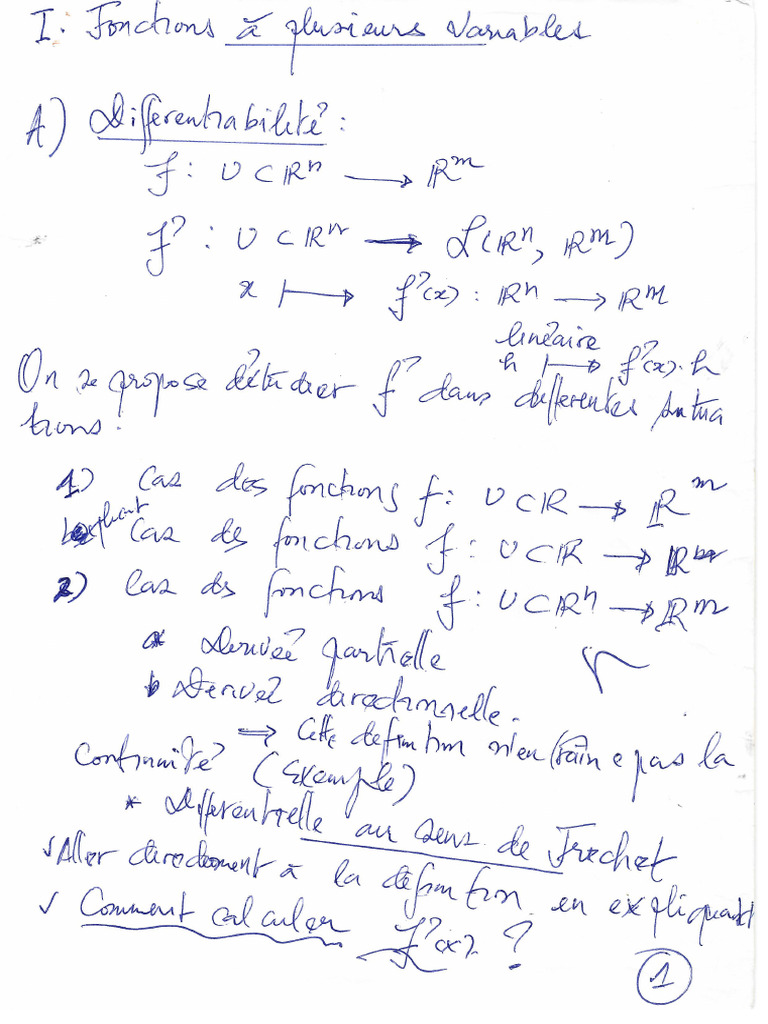 I. Fonctions à plusieurs variables
A) Différentiabilité :
f : U ⊂ ℝⁿ ⟶ ℝᵐ
f' : U ⊂ ℝⁿ ⟶ ℒ(ℝⁿ, ℝᵐ)
x ⟼ f'(x) : ℝⁿ ⟶ ℝᵐ
linéaire
h ⟼ f'(x)·h
On se propose d'étudier f' dans differentes situa
tions :
1) Cas des fonctions f : U ⊂ ℝ ⟶ ℝᵐ
Cas des fonctions f : U ⊂ ℝ ⟶ ℝ
2) Cas des fonctions f : U ⊂ ℝⁿ ⟶ ℝᵐ
a Derivée partielle
b Derivée directionnelle.
⟹ Cette definition n'entraîne pas la
Continuité (Exemple)
* Differentielle au sens de Frechet
✓ Aller directement à la définition en expliquant
✓ Comment calculer f'(x) ?
1